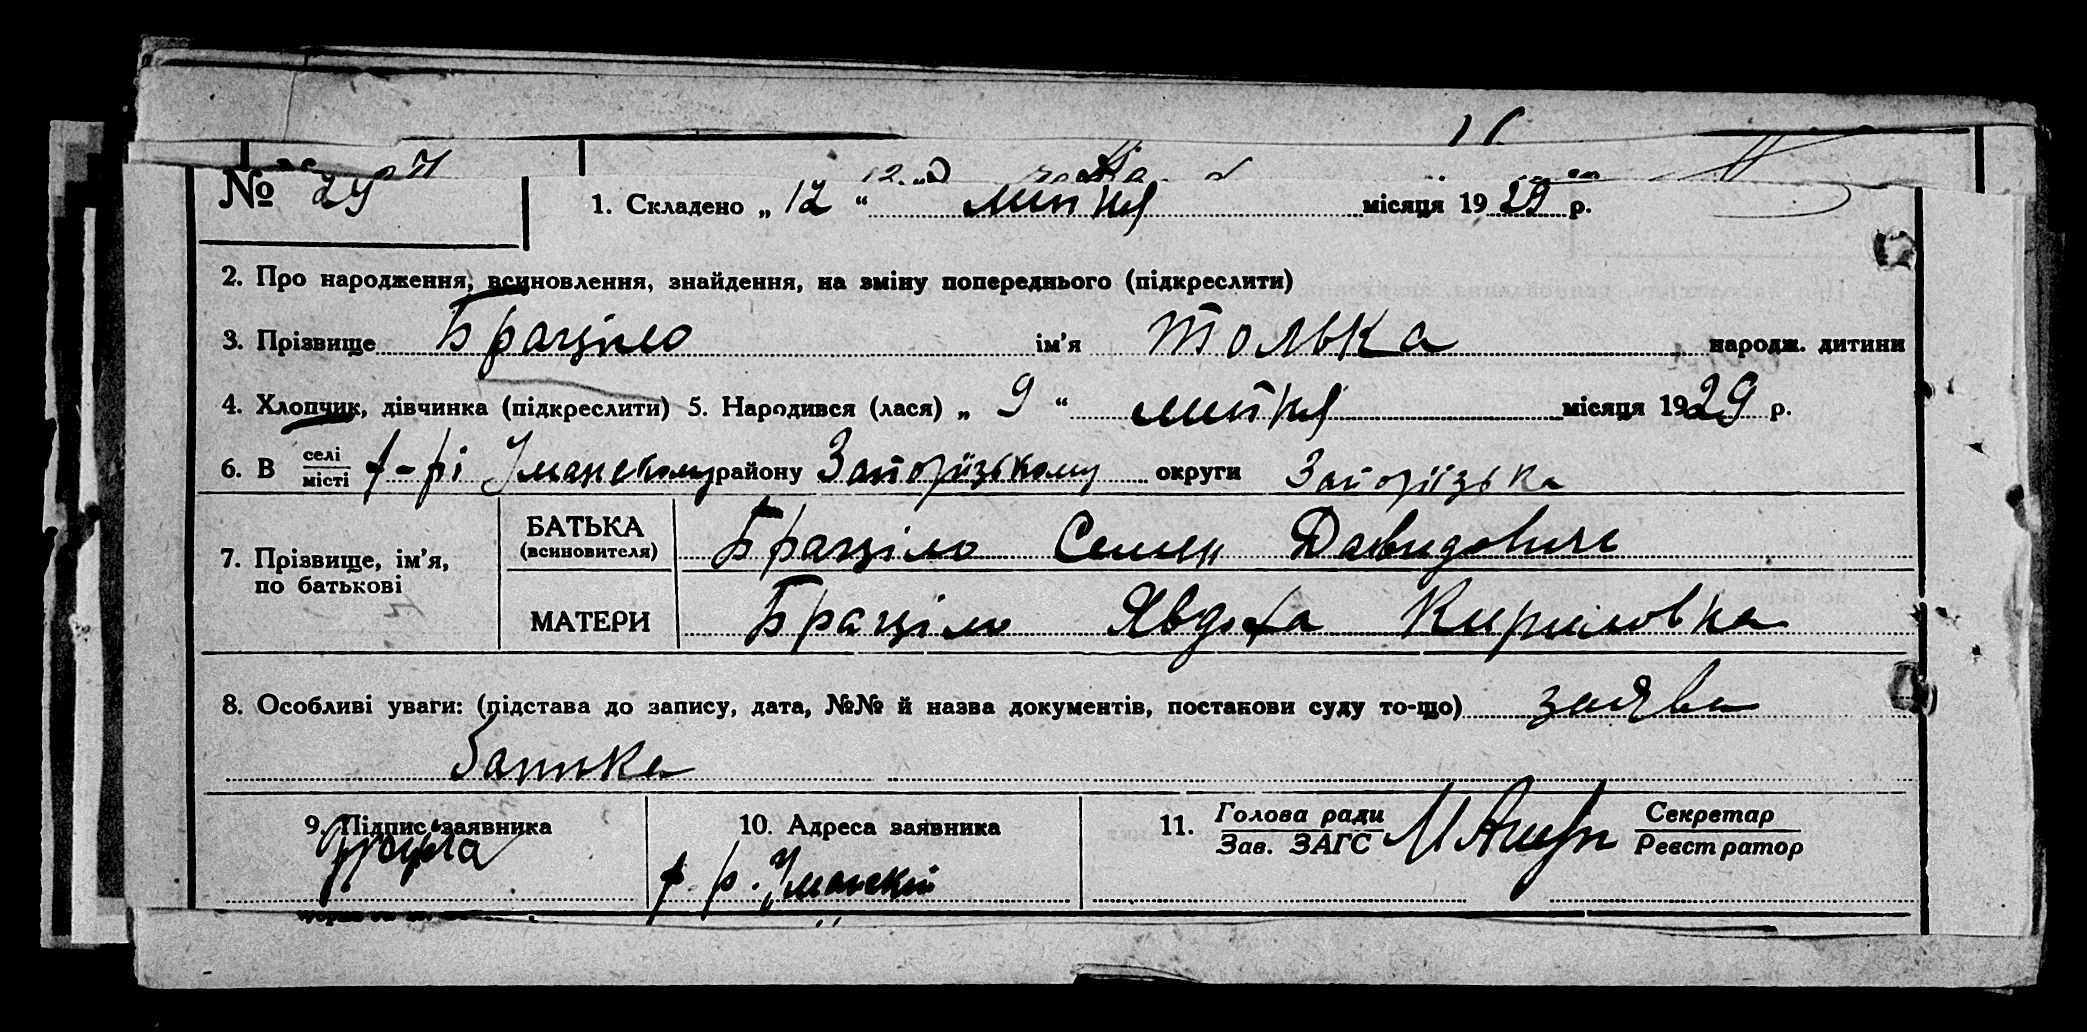 № 29
1. Складено „ 12 “ липня місяця 1929 р.
2. Про народження, всиновлення, знайдення, на зміну попереднього (підкреслити)
3. Прізвище Браціло ім'я Толька народж. дитини
4. Хлопчик, дівчинка (підкреслити) 5. Народився (лася) „ 9 “ липня місяця 1929 р.
6. В селі місті х-рі Уманському району Запорізькому округи Запоріізька
7. Прізвище, ім'я, по батькові
БАТЬКА (всиновителя) Браціло Семен Давидович
МАТЕРИ Браціло Явдоха Кириловна
8. Особливі уваги: (підстава до запису, дата, №№ й назва документів, постакови суду то-що) заява
батька
9. Підпис заявника 10. Адреса заявника 11. Голова ради Зав. ЗАГС Секретар Реєстратор
х. р. Уманский